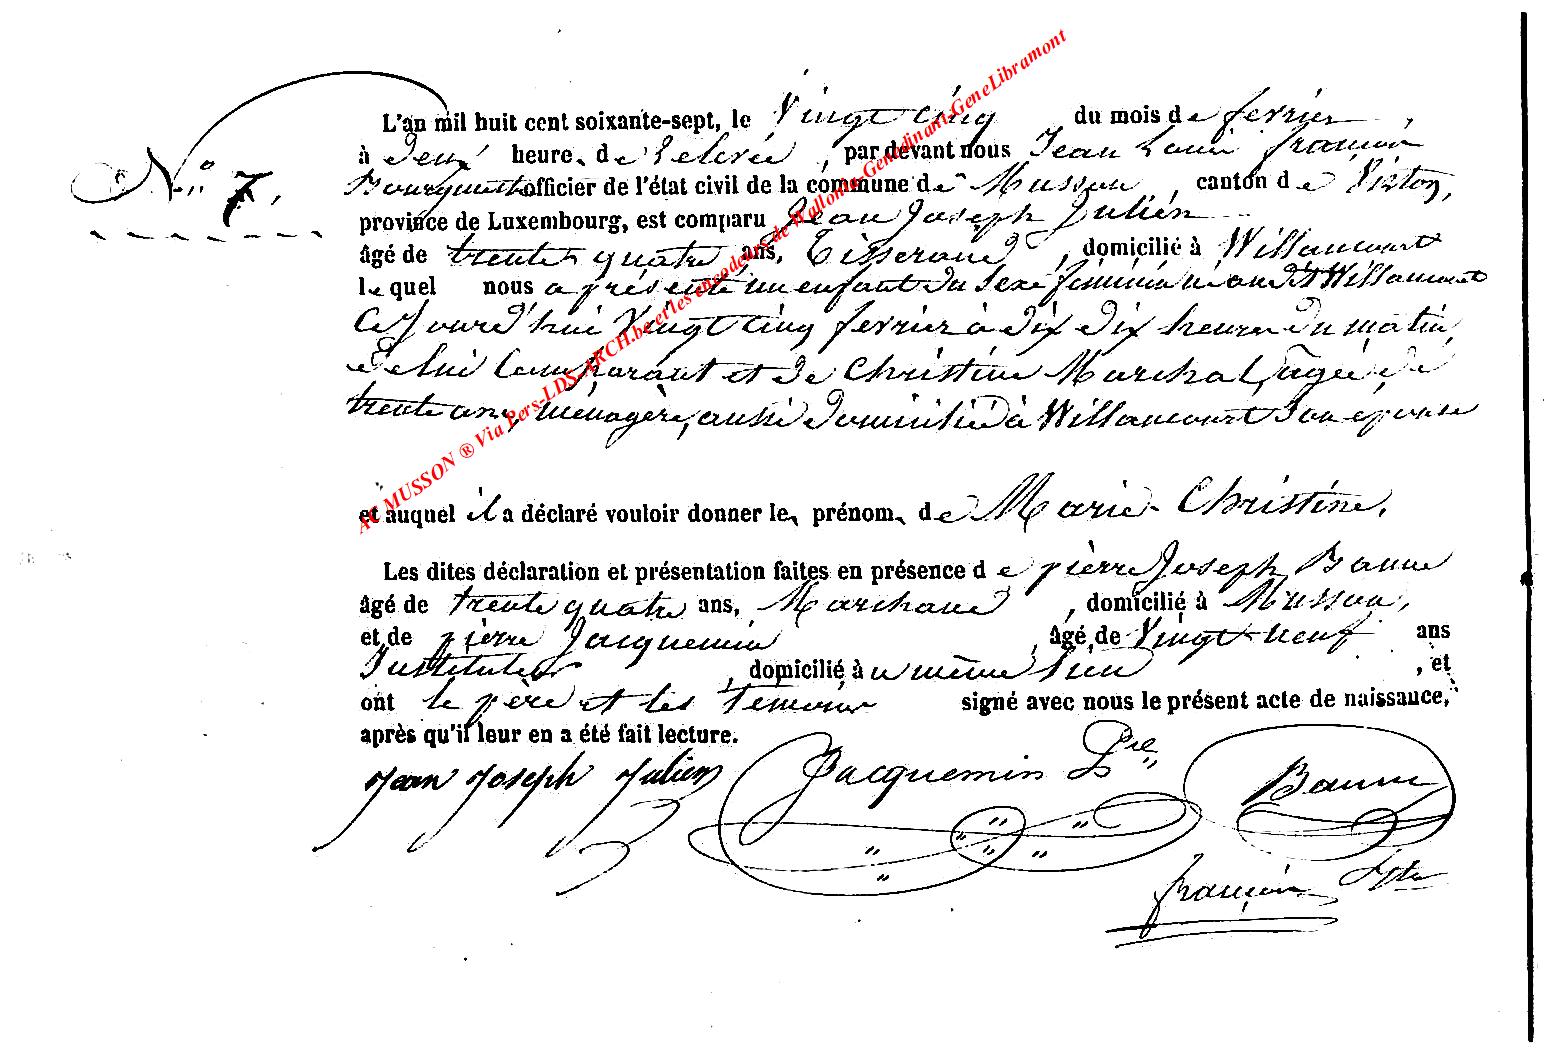 AC MUSSON ® Via Pers-LDS-ARCH.be et les encodeurs de Wallonia-Genedinant-GeneLibramont
L'an mil huit cent soixante-sept, le Vingt cinq du mois de fevrier,
à deux heure, de relevée, par devant nous Jean Louis françois
N° 7, officier de l'état civil de la commune de Musson, canton de Virton,
province de Luxembourg, est comparu Jean Joseph Julien
âgé de trente quatre ans, Tisserand, domicilié à Willancourt
lequel nous a présenté un enfant du sexe féminin né audit Willancourt
Cejourd'hui Vingt Cinq fevrier à dix dix heures du matin,
de lui Comparant et de Christine Marchal, agée de
trente ans, ménagère, aussi domicilié à Willancourt Son épouse
et auquel il a déclaré vouloir donner le, prénom, de Marie-Christine.
Les dites déclaration et présentation faites en présence de pièrre Joseph
âgé de trente quatre ans, Marchand, domicilié à Musson,
et de pièrre Jacquemin, âgé de Vingt-neuf ans
Instituteur, domicilié à u même lieu, et
ont le père et les témoins signé avec nous le présent acte de naissance,
après qu'il leur en a été fait lecture.
Jean Joseph Julien Jacquemin Pre
françois